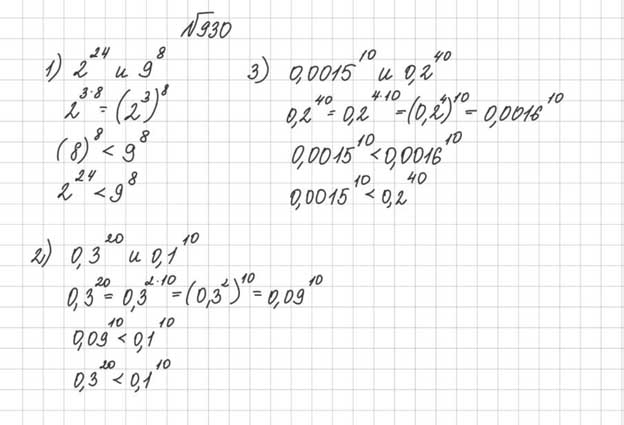 №930
1) 2^24 и 9^8
2^3·8 = (2^3)^8
(8)^8 < 9^8
2^24 < 9^8
3) 0,0015^10 и 0,2^40
0,2^40 = 0,2^4·10 = (0,2^4)^10 = 0,0016^10
0,0015^10 < 0,0016^10
0,0015^10 < 0,2^40
2) 0,3^20 и 0,1^10
0,3^20 = 0,3^2·10 = (0,3^2)^10 = 0,09^10
0,09^10 < 0,1^10
0,3^20 < 0,1^10